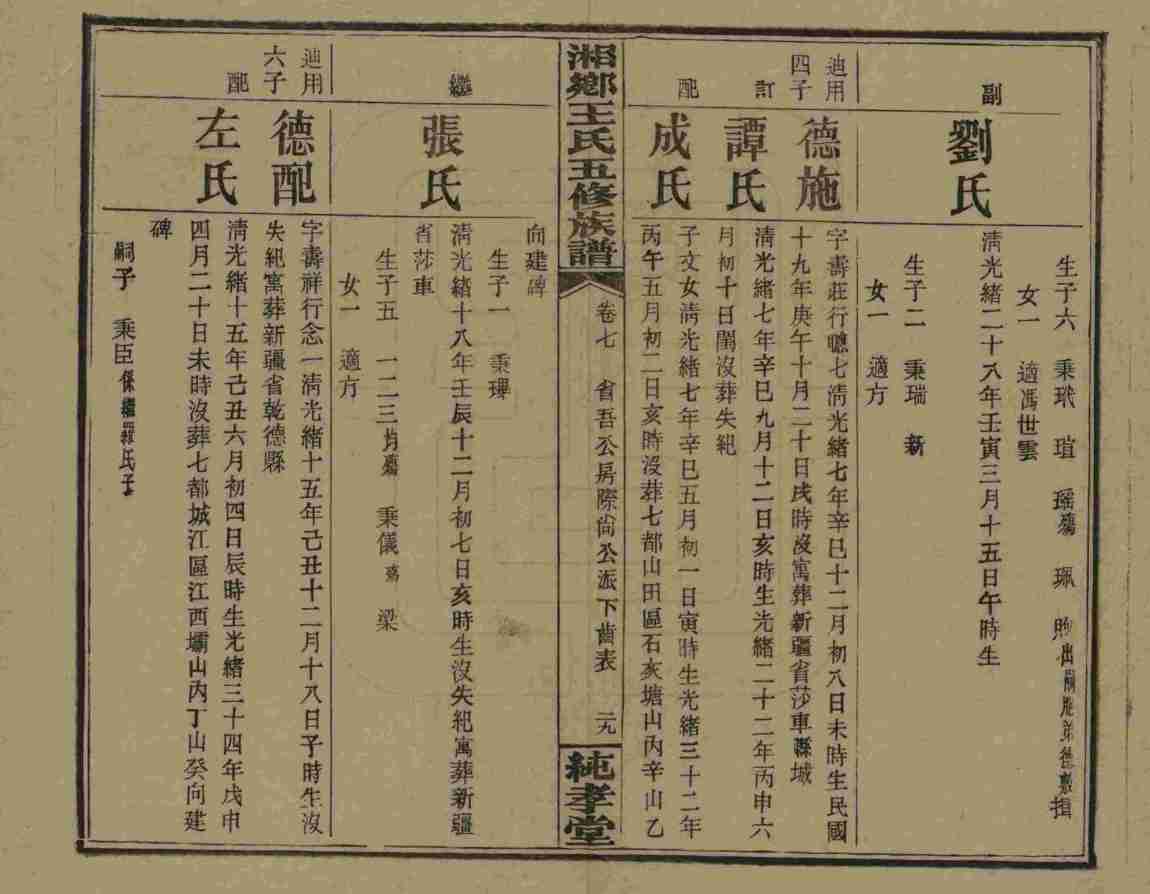 生子六 秉玳 瑄 瑶殤 珮 煦出嗣胞弟德敷 揖
女一 適馮世雲
副
劉氏
清光緒二十八年壬寅三月十五日午時生
生子二 秉瑞 新
女一 適方
迪用
四子
德施
字壽莊行聰七清光緒七年辛巳十二月初八日未時生民國
十九年庚午十月二十日戌時沒寓葬新疆省莎車縣城
訂
譚氏
清光緒七年辛巳九月十二日亥時生光緒二十二年丙申六
月初十日閨沒葬失紀
配
成氏
子文女清光緒七年辛巳五月初一日寅時生光緒三十二年
丙午五月初二日亥時沒葬七都山田區石亥塘山丙辛山乙
湘鄉王氏五修族譜
卷七 省吾公房際尙公派下齒表 二九
純孝堂
向建碑
生子一 秉瓔
繼
張氏
清光緒十八年壬辰十二月初七日亥時生沒失紀寓葬新疆
省莎車
生子五 一二三均殤 秉儀殤 梁
女一 適方
迪用
六子
德配
字壽祥行念一清光緒十五年己丑十二月十八日子時生沒
失紀寓葬新疆省乾德縣
配
左氏
清光緒十五年己丑六月初四日辰時生光緒三十四年戊申
四月二十日未時沒葬七都城江區江西壩山內丁山癸向建
碑
嗣子 秉臣係繼羅氏子